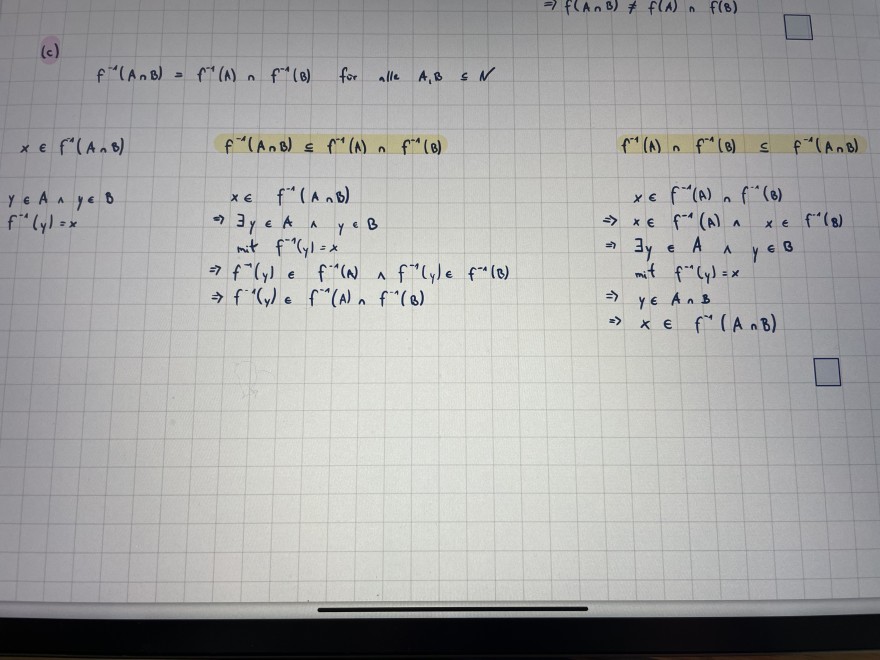 ⇒ f(A∩B) ≠ f(A) ∩ f(B)
(c)
f⁻¹(A∩B) = f⁻¹(A) ∩ f⁻¹(B) für alle A,B ⊆ N
x ∈ f⁻¹(A∩B)
y ∈ A ∧ y ∈ B
f⁻¹(y) = x
f⁻¹(A∩B) ⊆ f⁻¹(A) ∩ f⁻¹(B)
x ∈ f⁻¹(A∩B)
⇒ ∃y ∈ A ∧ y ∈ B
mit f⁻¹(y) = x
⇒ f⁻¹(y) ∈ f⁻¹(A) ∧ f⁻¹(y) ∈ f⁻¹(B)
⇒ f⁻¹(y) ∈ f⁻¹(A) ∩ f⁻¹(B)
f⁻¹(A) ∩ f⁻¹(B) ⊆ f⁻¹(A∩B)
x ∈ f⁻¹(A) ∩ f⁻¹(B)
⇒ x ∈ f⁻¹(A) ∧ x ∈ f⁻¹(B)
⇒ ∃y ∈ A ∧ y ∈ B
mit f⁻¹(y) = x
⇒ y ∈ A∩B
⇒ x ∈ f⁻¹(A∩B)